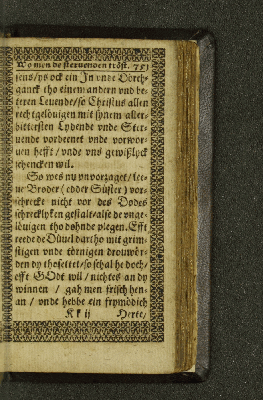 Wo men de steruenden tröst. 751
jens/ ys ock ein In vnde Dörch-
ganck tho einem andern vnd be-
teren Leuende/ so Christus allen
rechtgelöuigen mit synem aller-
bittersten Lydende vnde Ster-
uende vordeenet vnde vorwor-
uen hefft / vnde vns gewißlyck
schencken wil.
So wes nu vnvorzaget/ lee-
ue Broder ( edder Süster ) vor-
schreckt nicht vor des Dodes
schrecklyken gestalt/ alse de vnge-
löuigen tho dohnde plegen. Efft
reede de Düuel dartho mit grim-
stigen vnde törnigen drouwör-
den dy thosettet/ so schal he doch/
efft GOdt wil / nichtes an dy
winnen / gah men frisch hen-
an / vnde hebbe ein frymödich
K k ij Herte/